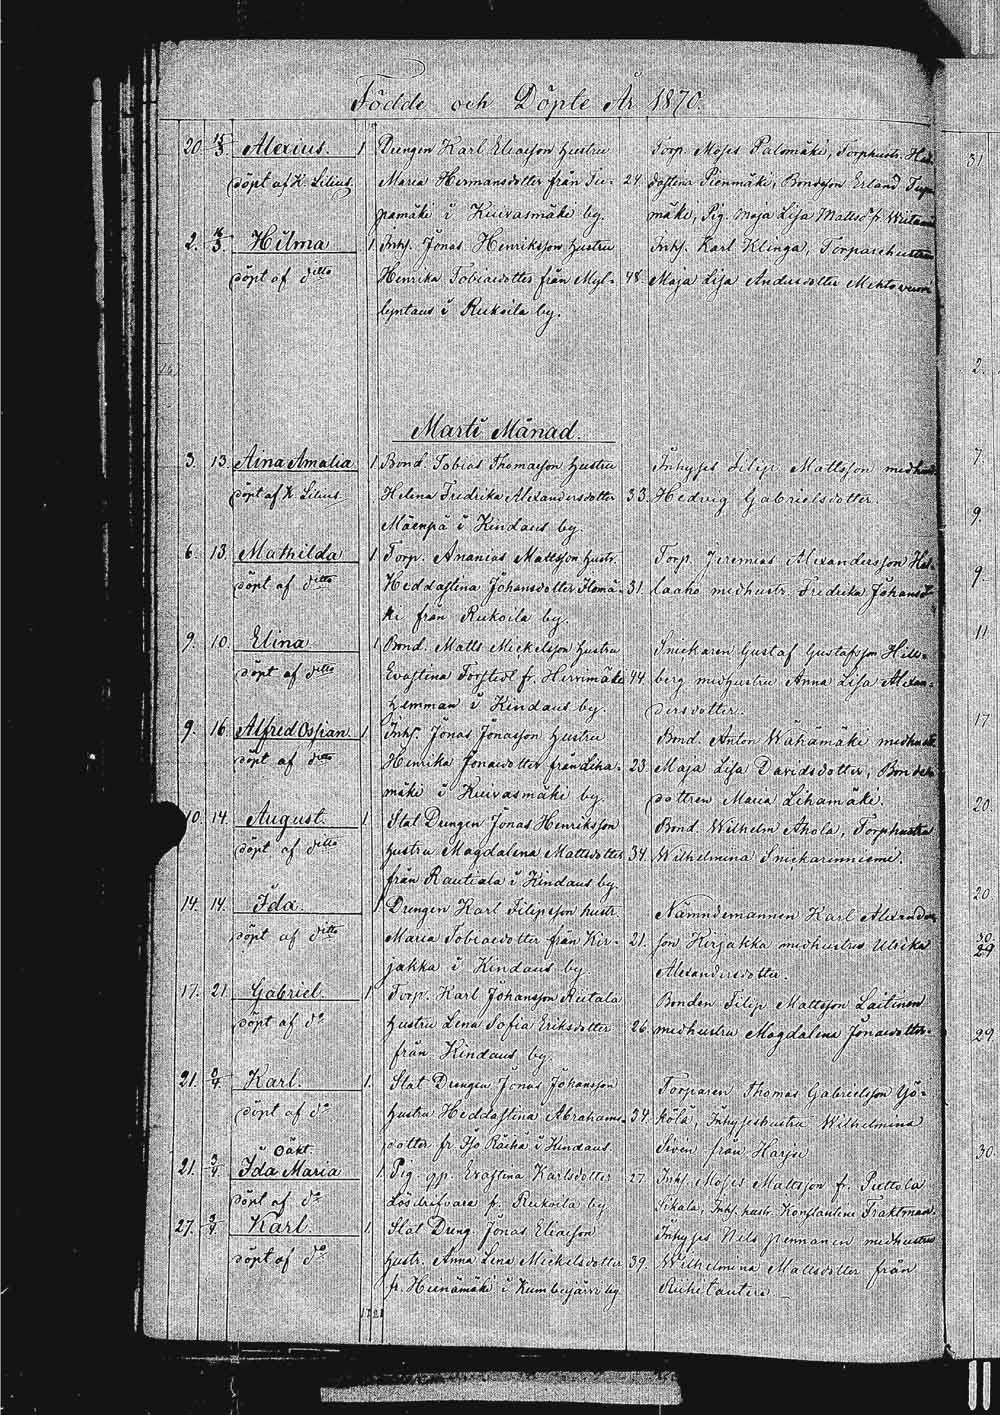 Födde och Döpte År 1870.
20. 15/3 Alexius. 1 Drengen Karl Eliasson hustru Torp. Moses Palomäki, Torphustr. Hed-
döpt af K. Lilius. Maria Hermansdotter från Tu- 24. dastina Pienmäki, Bondeson Erland
pamäki i Kuivasmäki by. mäki, Pig. Maja Lisa Mattsdr
2. 16/3 Hilma 1 Inhs. Jonas Henriksson hustru Inhs. Karl Klinga, Torparehustrun
döpt af ditto Henrika Tobiasdotter från Myl- 48. Maja Lisa Andersdotter Mehtovuori
lyntaus i Rukoila by.
Marti Månad.
3. 13. Aina Amalia 1 Bond. Tobias Thomasson hustru Inhyses Filip Mattsson medhust.
döpt af K. Lilius Helena Fredrika Alexandersdotter 33. Hedvig Gabrielsdotter.
Mäenpä i Kindaus by.
6. 13. Mathilda 1. Torp. Ananias Mattsson hustr. Torp. Jeremias Alexandersson
döpt af ditto Heddastina Johansdotter Ilomä- 31. laaho medhustr. Fredrika Johansd.
ki från Rukoila by.
9. 10. Elina 1 Bond. Matts Mickelsson hustru Snickaren Gustaf Gustafsson Hill-
döpt af ditto Evastina Torstedt fr. Hirvimäki 44. berg medhustru Anna Lisa Alexan-
hemman i Kindaus by. dersdotter.
9. 16. Alfred Ossian. 1. Inhs. Jonas Jonasson hustru Bond. Anton Wähämäki medhust.
döpt af ditto Henrika Jonasdotter från Liha- 23. Maja Lisa Davidsdotter, Bonde-
mäki i Kuivasmäki by dottren Maria Lihamäki.
10. 14. August. 1. Stat Drengen Jonas Henriksson Bond. Wilhelm Ahola, Torphustru
döpt af ditto hustru Magdalena Mattsdotter 34. Wilhelmina Snickarinniemi.
från Rautiala i Kindaus by.
14. 14. Ida. 1. Drengen Karl Filipsson hustr. Nämndemannen Karl Alexanders-
döpt af ditto Maria Tobiasdotter från Kir- 21. son Kirjakka medhustru Ulrika
jakka i Kindaus by Alexandersdotter.
17. 21. Gabriel. 1 Torp. Karl Johansson Rutala Bonden Filip Mattsson Laitinen
döpt af do hustru Lena Sofia Eriksdotter 26. medhustru Magdalena Jonasdotter.
från Kindaus by
21. 3/4. Karl. 1. Stat Drengen Jonas Johansson Torparen Thomas Gabrielsson
döpt af do hustru Heddastina Abrahams- 34. Inhyseshustru Wilhelmina
dotter fr. i Kindaus från Harju
Oäkt.
21. 3/4. Ida Maria 1. Pig. Evastina Karlsdotter 27. Inhs. Moses Mattsson fr. Puttola
döpt af do Lösdrifvare fr. Rukoila by Inhs. hustr. Konstantina Traktman.
27. 3/4. Karl. 1. Stat Dreng Jonas Eliasson Inhyses Nils Pennanen medhustru
döpt af do hustr. Anna Lena Mickelsdotter 39. Wilhelmina Mattsdotter från
fr. Heinämäki i Kumbujärvi by